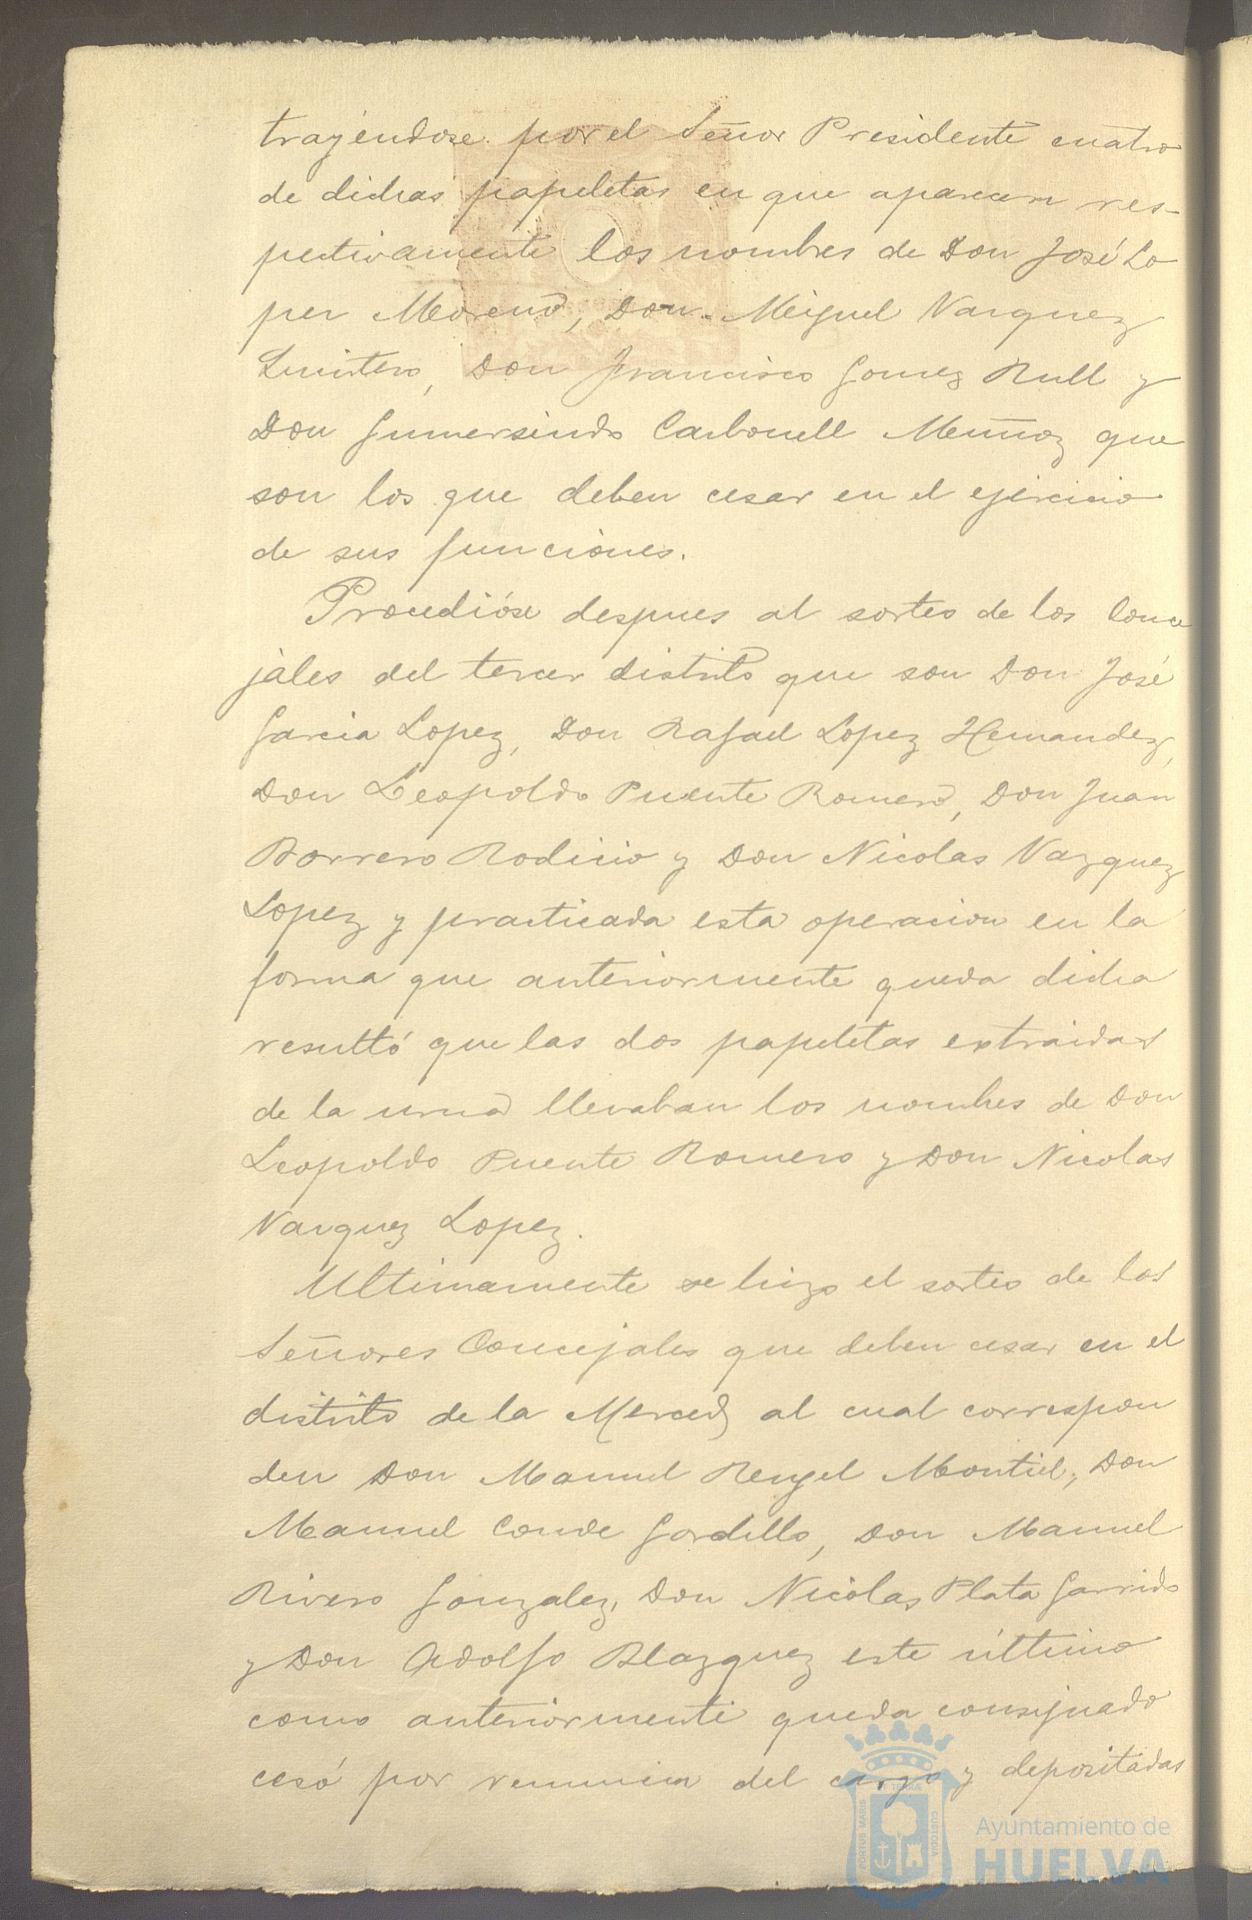 trayéndose por el Señor Presidente cuatro
de dichas papeletas en que aparecen res-
pectivamente los nombres de Don José Lo
pez Moreno, Don Miguel Vazquez
Quintero, Don Francisco Gomez Rull y
Don Gumersindo Carbonell Muñoz que
son los que deben cesar en el ejercicio
de sus funciones.
Procedióse despues al sorteo de los Conce
jales del tercer distrito que son Don José
Garcia Lopez, Don Rafael Lopez Hernandez,
Don Leopoldo Puente Romero, Don Juan
Borrero Rodicio y Don Nicolas Vazquez
Lopez y practicada esta operacion en la
forma que anteriormente queda dicha
resultó que las dos papeletas extraidas
de la urna llevaban los nombres de Don
Leopoldo Puente Romero y Don Nicolas
Vazquez Lopez.
Ultimamente se hizo el sorteo de los
Señores Concejales que deben cesar en el
distrito de la Merced al cual correspon
den Don Manuel Rengel Montiel, Don
Manuel Conde Gordillo, Don Manuel
Rivero Gonzalez, Don Nicolas Plata Garrido
y Don Adolfo Blazquez este último
como anteriormente queda consignado
cesó por renuncia del cargo y depositadas
PORTUS MARIS
CUSTODIA
Ayuntamiento de
HUELVA